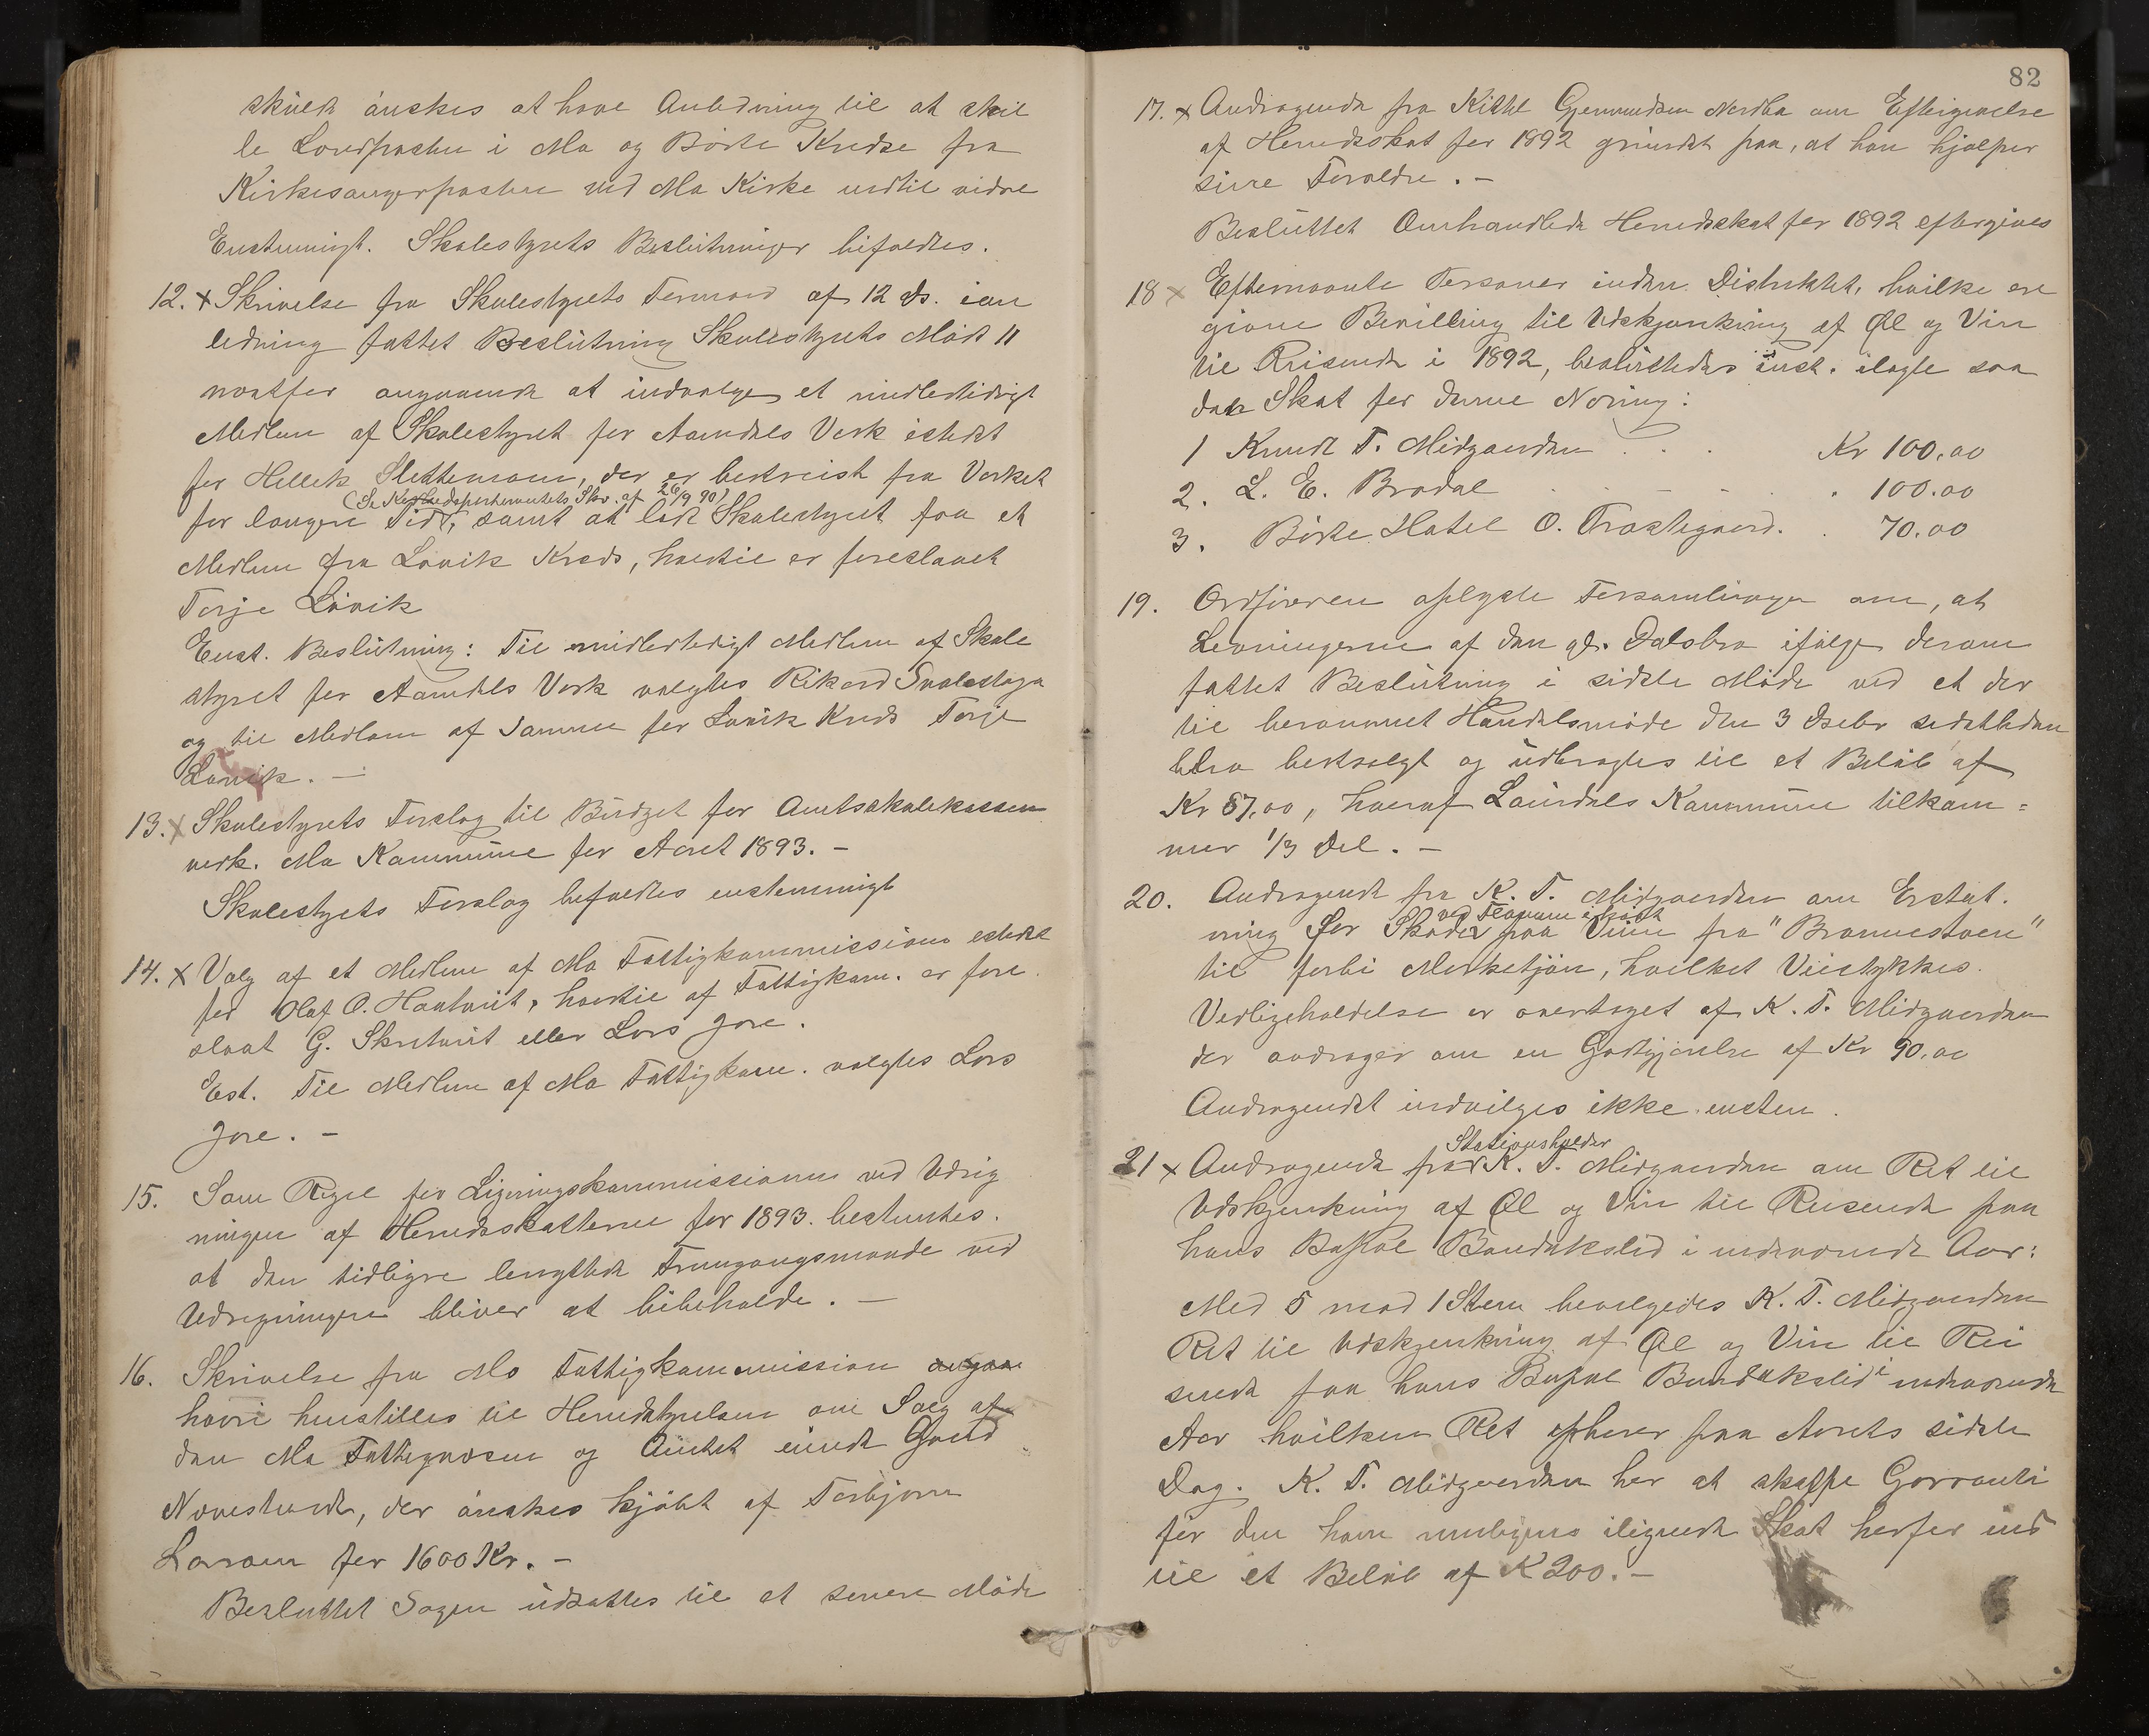 skildt ønskes at have Anledning til at skil
le Lærerposten i Mo og Børte Kredse fra
Kirkesangerposten ved Mo Kirke indtil videre
Enstemmigt. Skolestyrets Beslutninger bifaldtes.
12. x Skrivelse fra Skolestyrets Formand af 12 ds. i an
ledning fattet Beslutning Skolestyrets Møde 11
næstfør angaaende at indvælge et midlertidigt
Medlem af Skolestyret for Aamdals Værk istedet
for Hellek Slettemoen, der er bortreist fra Værket
(Se Kirkedepartementets Skr. af 26/9 90)
for længere Tid, samt at lade Skolestyret faa et
Medlem fra Løvik Kreds, hvortil er foreslaaet
Torje Løvik
Enst. Beslutning: Til midlertidigt Medlem af Skole
styret for Aamdals Værk valgtes Rikard Svalestoga
og til Medlem af Samme for Løvik Kreds Torje
Løvik. —
13. x Skolestyrets Forslag til Budget for Amtsskolekassen
vedk. Mo Kommune for Aaret 1893. —
Skolestyrets Forslag bifaldtes enstemmigt
14. x Valg af et Medlem af Mo Fattigkommission istedet
for Olaf O. Haatveit, hvortil af Fattigkom. er fore
slaat G. Skretveit eller Lars Jore.
Est. Til Medlem af Mo Fattigkom. valgtes Lars
Jore. —
15. Som Regel for Ligningskommissionen ved Udrig
ningen af Herredsskatterne for 1893. bestemtes.
at den tidligere benyttede Fremgangsmaade ved
Udregningen bliver at bibeholde. —
16. Skrivelse fra Mo Fattigkommission angaa
hvori henstilles til Herredstyrelsen om Salg af
den Mo Fattigvæsen og Amtet eiende Gaard
Navestrand, der ønskes kjøbt af Torbjørn
Larsen for 1600 Kr. —
Besluttet Sagen udsættes til et senere Møde
82
17. x Andragende fra Kittel Gjermundsen Nordbø om Eftergivelse
af Herredsskat for 1892 grundet paa, at han hjælper
sine Forældre. —
Besluttet Omhandlede Herredsskat for 1892 eftergives
18 x Efternævnte Personer inden Distriktet, hvilke ere
given Bevilling til Udskjænkning af Øl og Vin
til Reisende i 1892, besluttedes enst. ilagte saa
dan Skat for denne Næring:
1 Knudt T. Midgaarden . . . Kr 100.00
2. L. E. Bradal . . . 100.00
3. Børte Hotel O. Trostegaard. . 70.00
19. Ordføreren oplyste Forsamlingen om, at
Levningerne af den gl. Dalsbro ifølge derom
fattet Beslutning i sidste Møde ved et der
til berammet Handelsmøde den 3 Dsebr sidstleden
blev bortsolgt og udbragtes til et Beløb af
Kr 57.00, hvoraf Laurdals Kommune tilkom=
mer 1/3 Del. —
20. Andragende fra K. T. Midgaarden om Erstat.
ved Flommen ihøst
ning for Skader paa Veien fra "Brannestaen"
til forbi Morketjøn, hvilket Veistykkes
Vedligeholdelse er overtaget af K. T. Midgaarden
der andrager om en Godtgjørelse af Kr 90.00
Andragendet indvilges ikke. ensten.
Stationsholder
21 x Andragende fra K. T. Midgaarden om Ret til
Udskjænkning af Øl og Vin til Reisende paa
hans Bopæl Bandakslid i indeværende Aar:
Med 5 mod 1 Stem bevilgedes K. T. Midgaarden
Ret til Udskjænkning af Øl og Vin til Rei
sende paa hans Bopæl Bandakslid i indeværende
Aar hvilken Ret ophører paa Aarets sidste
Dag. K. T. Midgaarden har at skaffe Garranti
for den ham muligens ilignede Skat herfor ind
til et Beløb af K 200. —